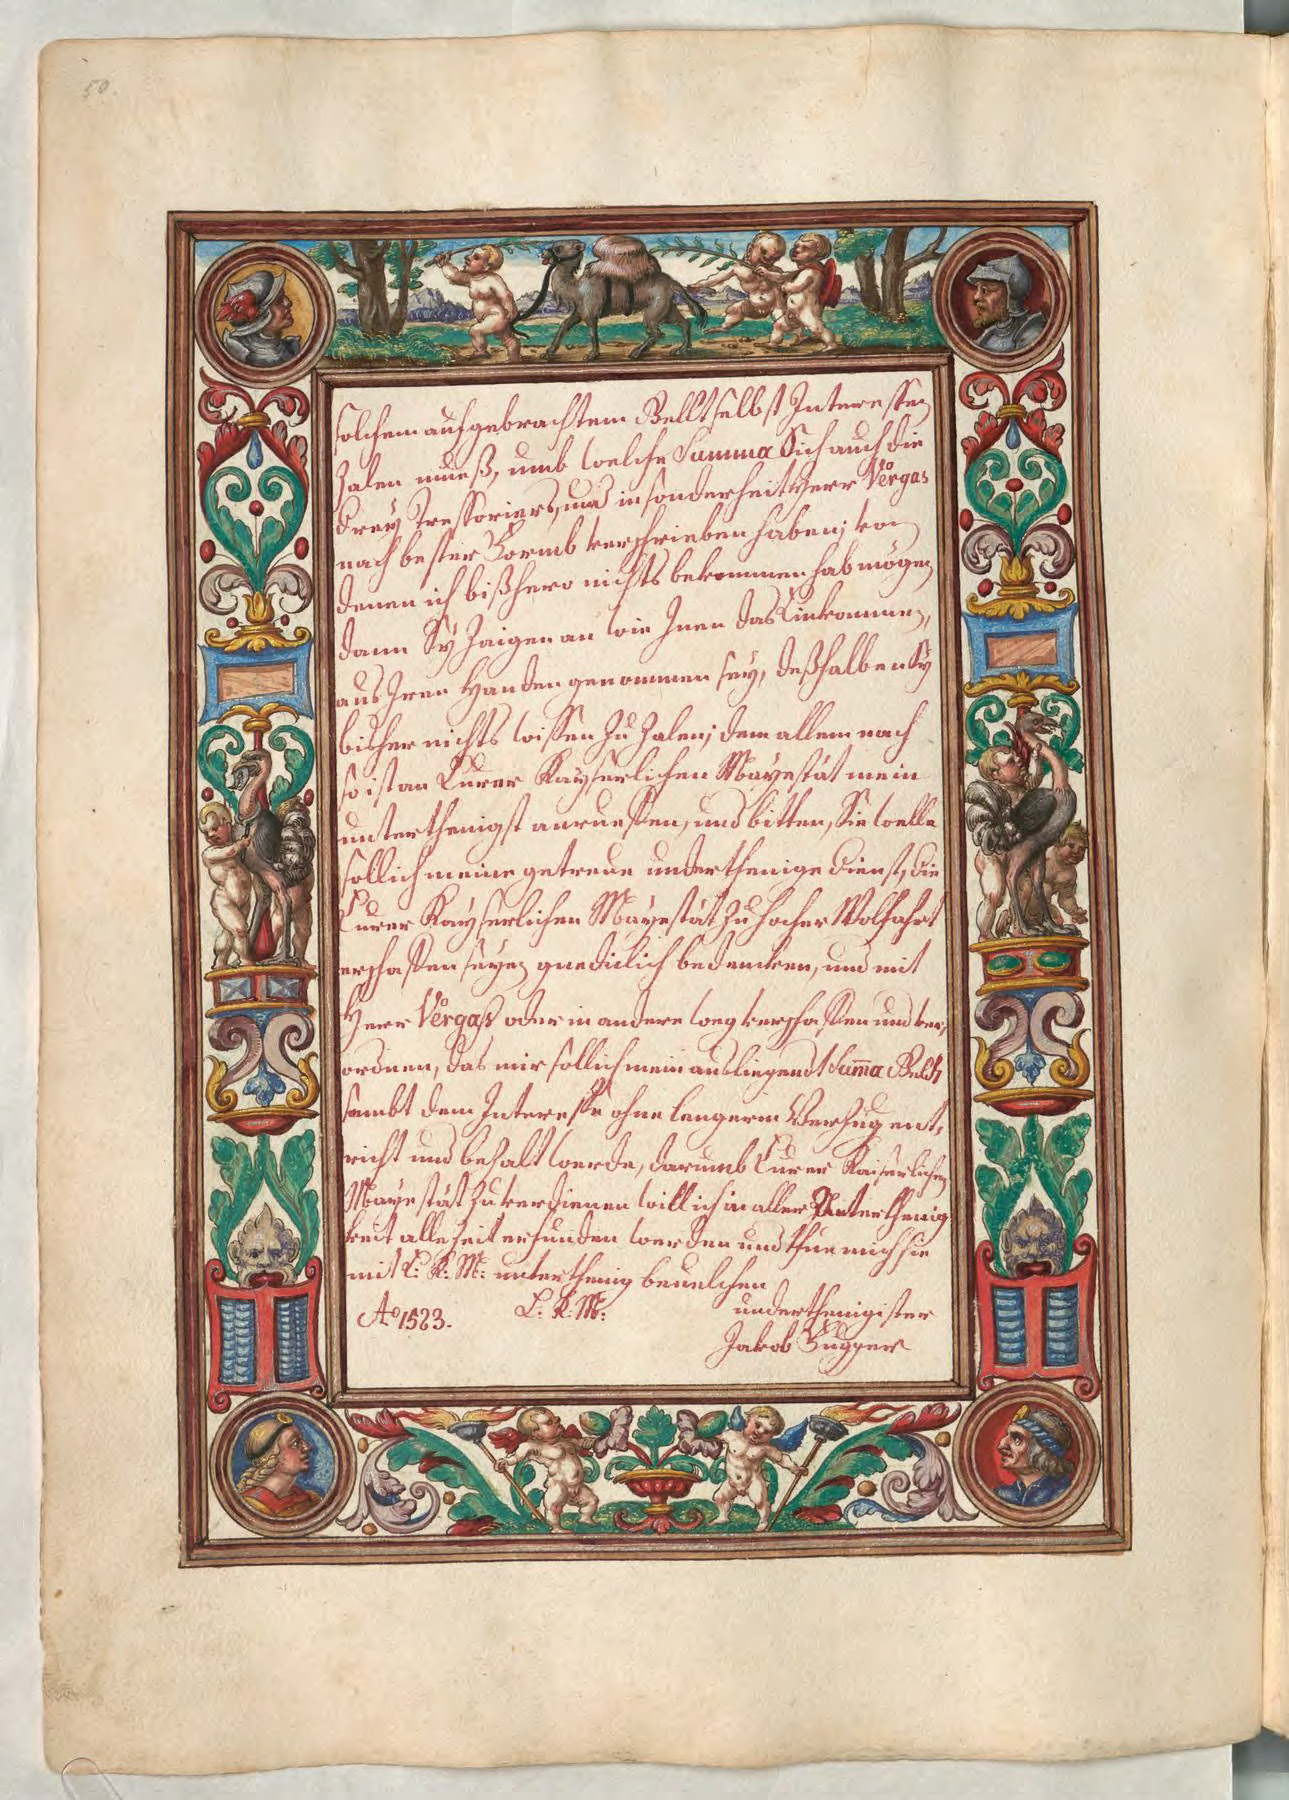 50.
solchem aufgebrachtem Gellt selbst Interessen
Zalen mueß, umb welche Summa Sich auch die
drey Tressoriers, und insonderheit Herr Vërgas
nach bester Formb verschrieben haben; von
denen ich bißhero nichts bekommen hab mögen,
dann Sÿ Zaigen an wie Inen das Einkommen,
aus Iren Handen genommen seÿ, deßhalben Sÿ
bisher nichts wissen Zu Zalen; dem allem nach
so ist an Eurer Kaÿserlichen Mayestät mein
unterthenigst anrueffen, und bitten, Sie welle
sollich meine getreue underthenige dienst, die
Eurer Kaÿserlichen Mayestät Zu hocher Wolfahrt
erschossen seyen gnediclich bedencken, und mit
Herr Vërgaß oder in andere weg verschaffen und ver,
ordnen, das mir sollich mein ausligendt Sum̄a Geldt
sambt dem Interesse ohne lengerm Verzug ent,
richt und bezalt werde, darumb Eurer Kaiserlichen
Mayestät Zu verdienen will ich in aller Unterthenig
keit alle Zeit erfunden werden und thue mich hie
mit E: K: M: unterthenig beuelchen
Aº 1523. E: K: M: underthenigister
Jakob Fugger